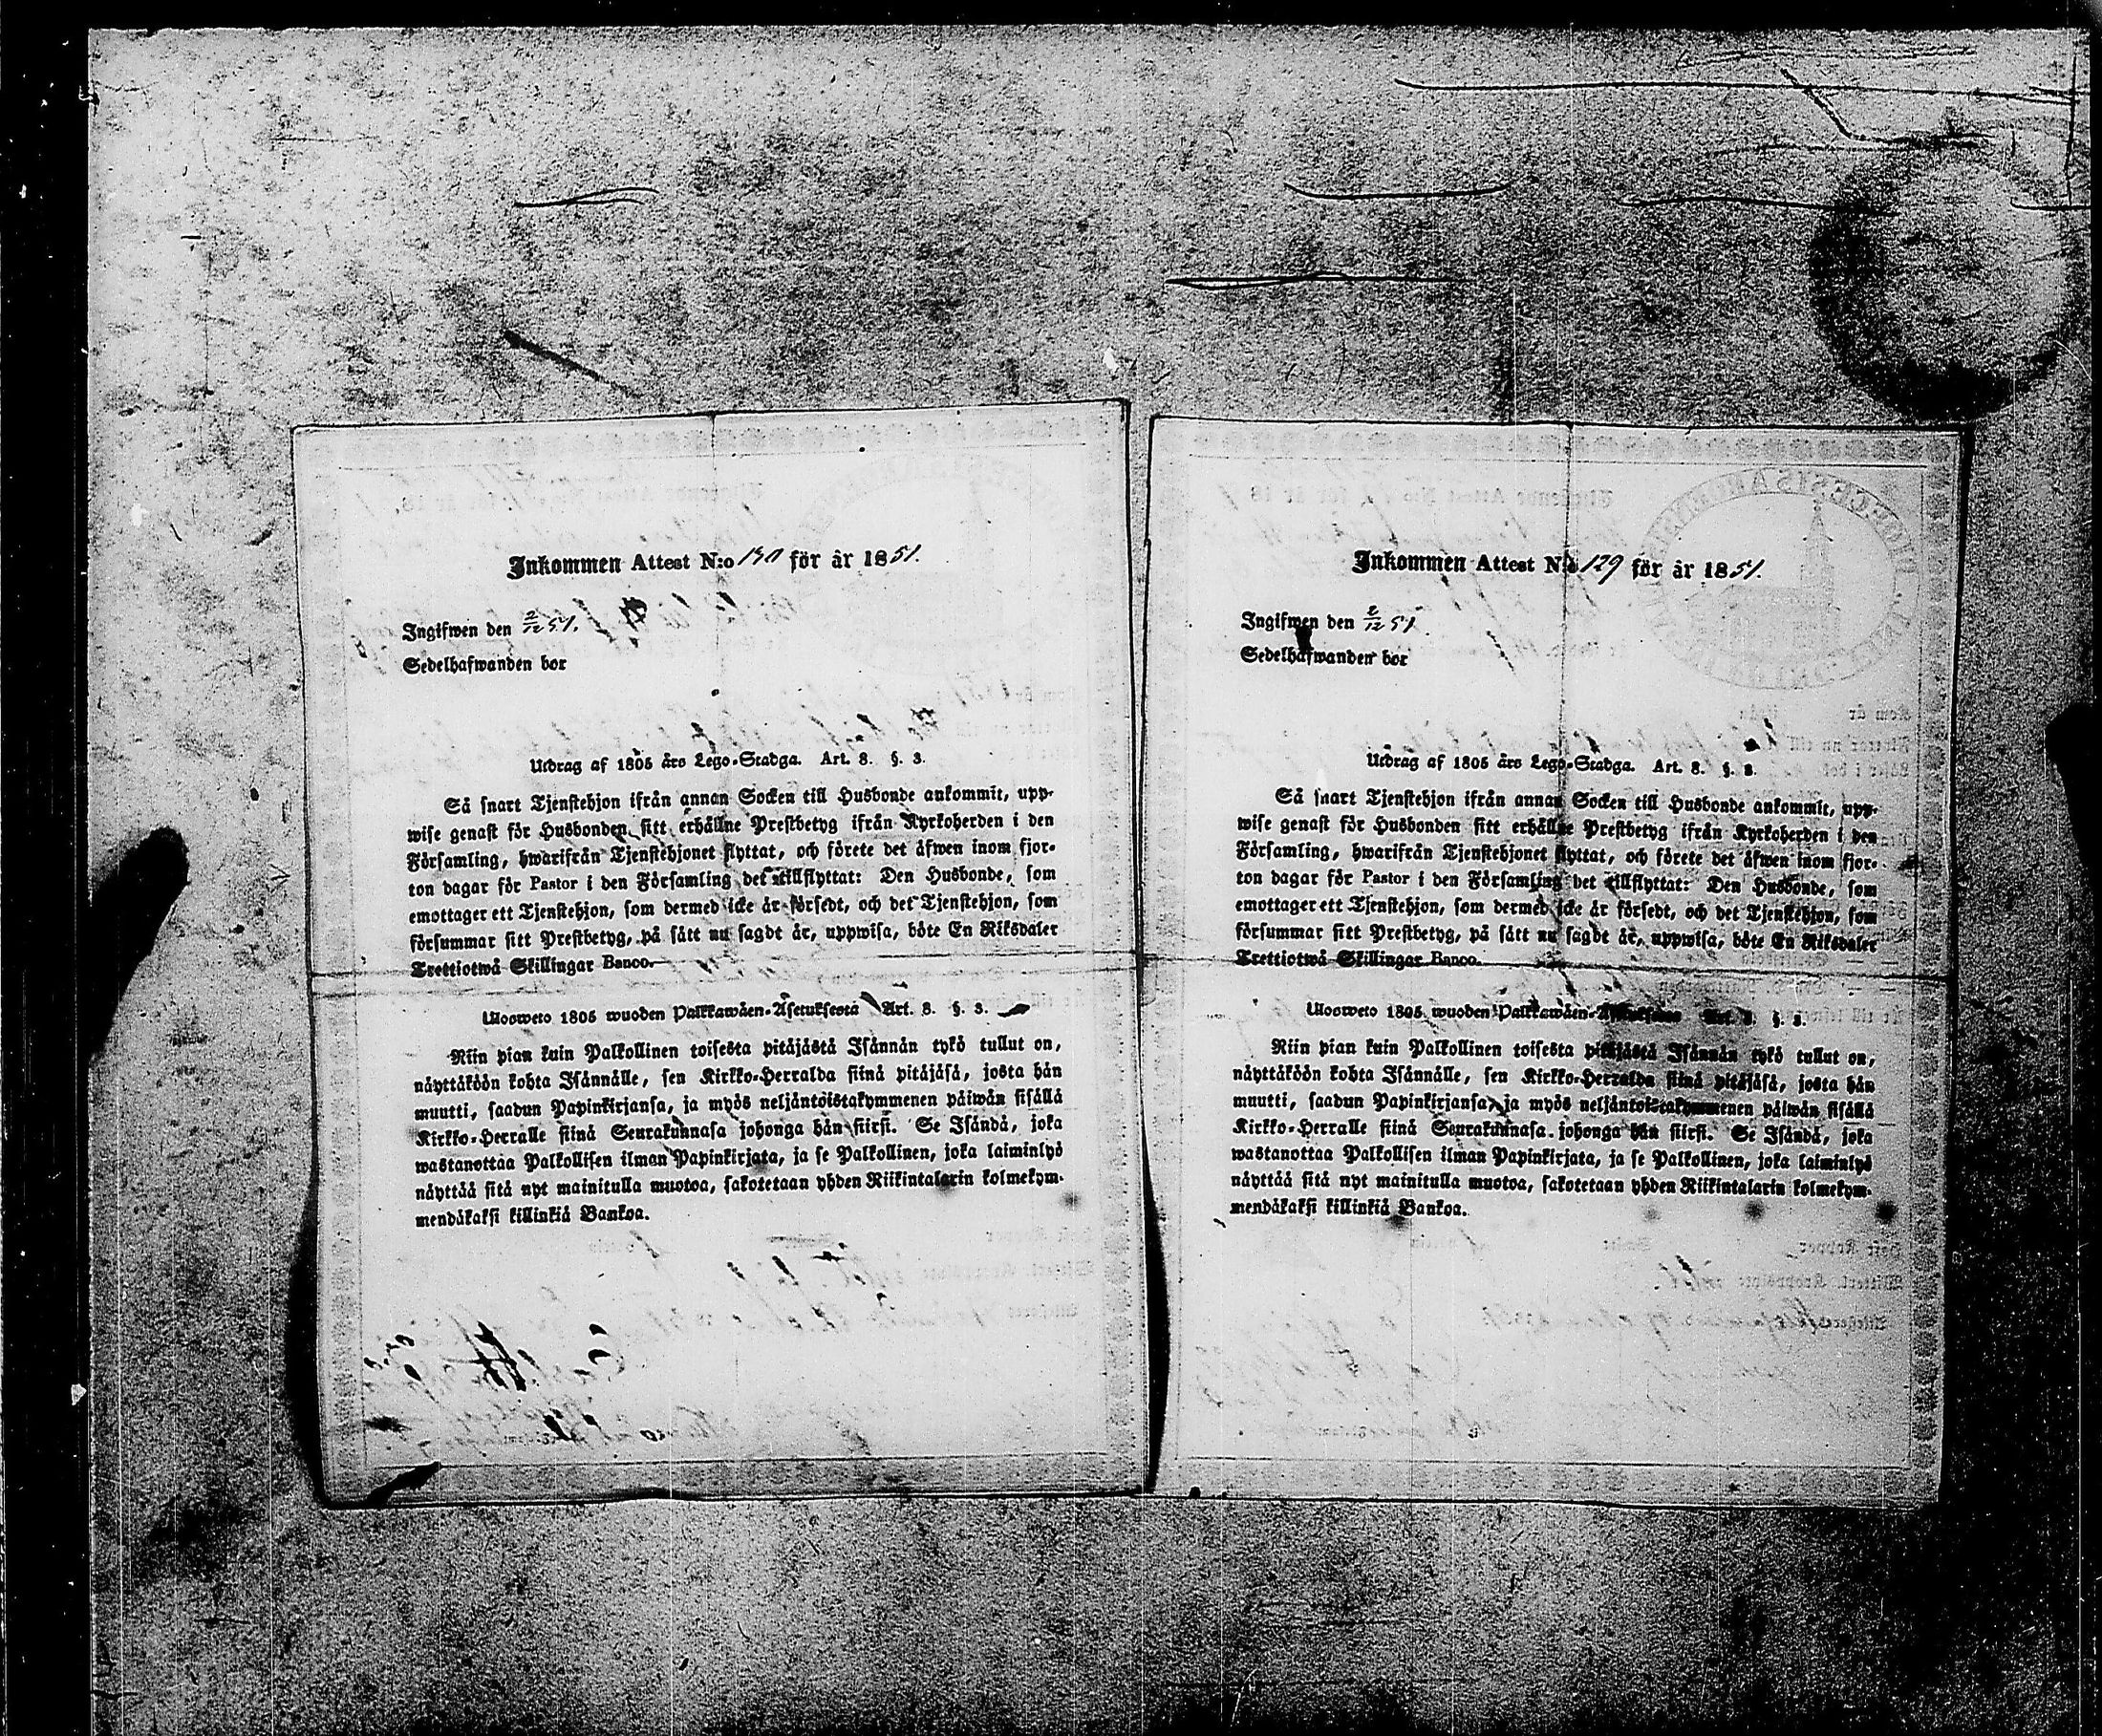 Inkommen Attest N:o 130 för år 1851.
Ingifwen den 2/12 51.
Sedelhafwanden bor
Utdrag af 1805 års Lego-Stadga. Art. 8. §. 3.
Så snart Tjenstehjon ifrån annan Socken till Husbonde ankommit, upp-
wise genast för Husbonden sitt erhållne Prestbetyg ifrån Kyrkoherden i den
Församling, hwarifrån Tjenstehjonet flyttat, och förete det åfwen inom fjor-
ton dagar för Pastor i den Församling det tillflyttat: Den Husbonde, som
emottager ett Tjenstehjon, som dermed icke är försedt, och det Tjenstehjon, som
försummar sitt Prestbetyg, på sätt nu sagdt är, uppwisa, böte En Riksdaler
Trettiotwå Skillingar Banco.
Ulosweto 1805 wuoden Palkkawäen-Asetuksesta Art. 8. §. 3.
Niin pian kuin Palkollinen toisesta pitäjästä Isännän tykö tullut on,
näyttäköön kohta Isännälle, sen Kirkko-Herralda siinä pitäjäsä, josta hän
muutti, saadun Papinkirjansa, ja myös neljäntoistakymmenen päiwän sisällä
Kirkko-Herralle siinä Seurakunnasa johonga hän siirsi. Se Isändä, joka
wastanottaa Palkollisen ilman Papinkirjata, ja se Palkollinen, joka laiminlyö
näyttää sitä nyt mainitulla muotoa, sakotetaan yhden Riikintalarin kolmekym-
mendäkaksi killinkiä Bankoa.
Inkommen Attest N:o 129 för år 1851.
Ingifwen den 2/12 51
Sedelhafwanden bor
Utdrag af 1805 års Lego-Stadga. Art. 8. §. 3.
Så snart Tjenstehjon ifrån annan Socken till Husbonde ankommit, upp-
wise genast för Husbonden sitt erhållne Prestbetyg ifrån Kyrkoherden i den
Församling, hwarifrån Tjenstehjonet flyttat, och förete det åfwen inom fjor-
ton dagar för Pastor i den Församling det tillflyttat: Den Husbonde, som
emottager ett Tjenstehjon, som dermed icke är försedt, och det Tjenstehjon, som
försummar sitt Prestbetyg, på sätt nu sagdt är, uppwisa, böte En Riksdaler
Trettiotwå Skillingar Banco.
Ulosweto 1805 wuoden Palkkawäen-Asetuksesta Art. 8. §. 3.
Niin pian kuin Palkollinen toisesta pitäjästä Isännän tykö tullut on,
näyttäköön kohta Isännälle, sen Kirkko-Herralda siinä pitäjäsä, josta hän
muutti, saadun Papinkirjansa, ja myös neljäntoistakymmenen päiwän sisällä
Kirkko-Herralle siinä Seurakunnasa johonga hän siirsi. Se Isändä, joka
wastanottaa Palkollisen ilman Papinkirjata, ja se Palkollinen, joka laiminlyö
näyttää sitä nyt mainitulla muotoa, sakotetaan yhden Riikintalarin kolmekym-
mendäkaksi killinkiä Bankoa.